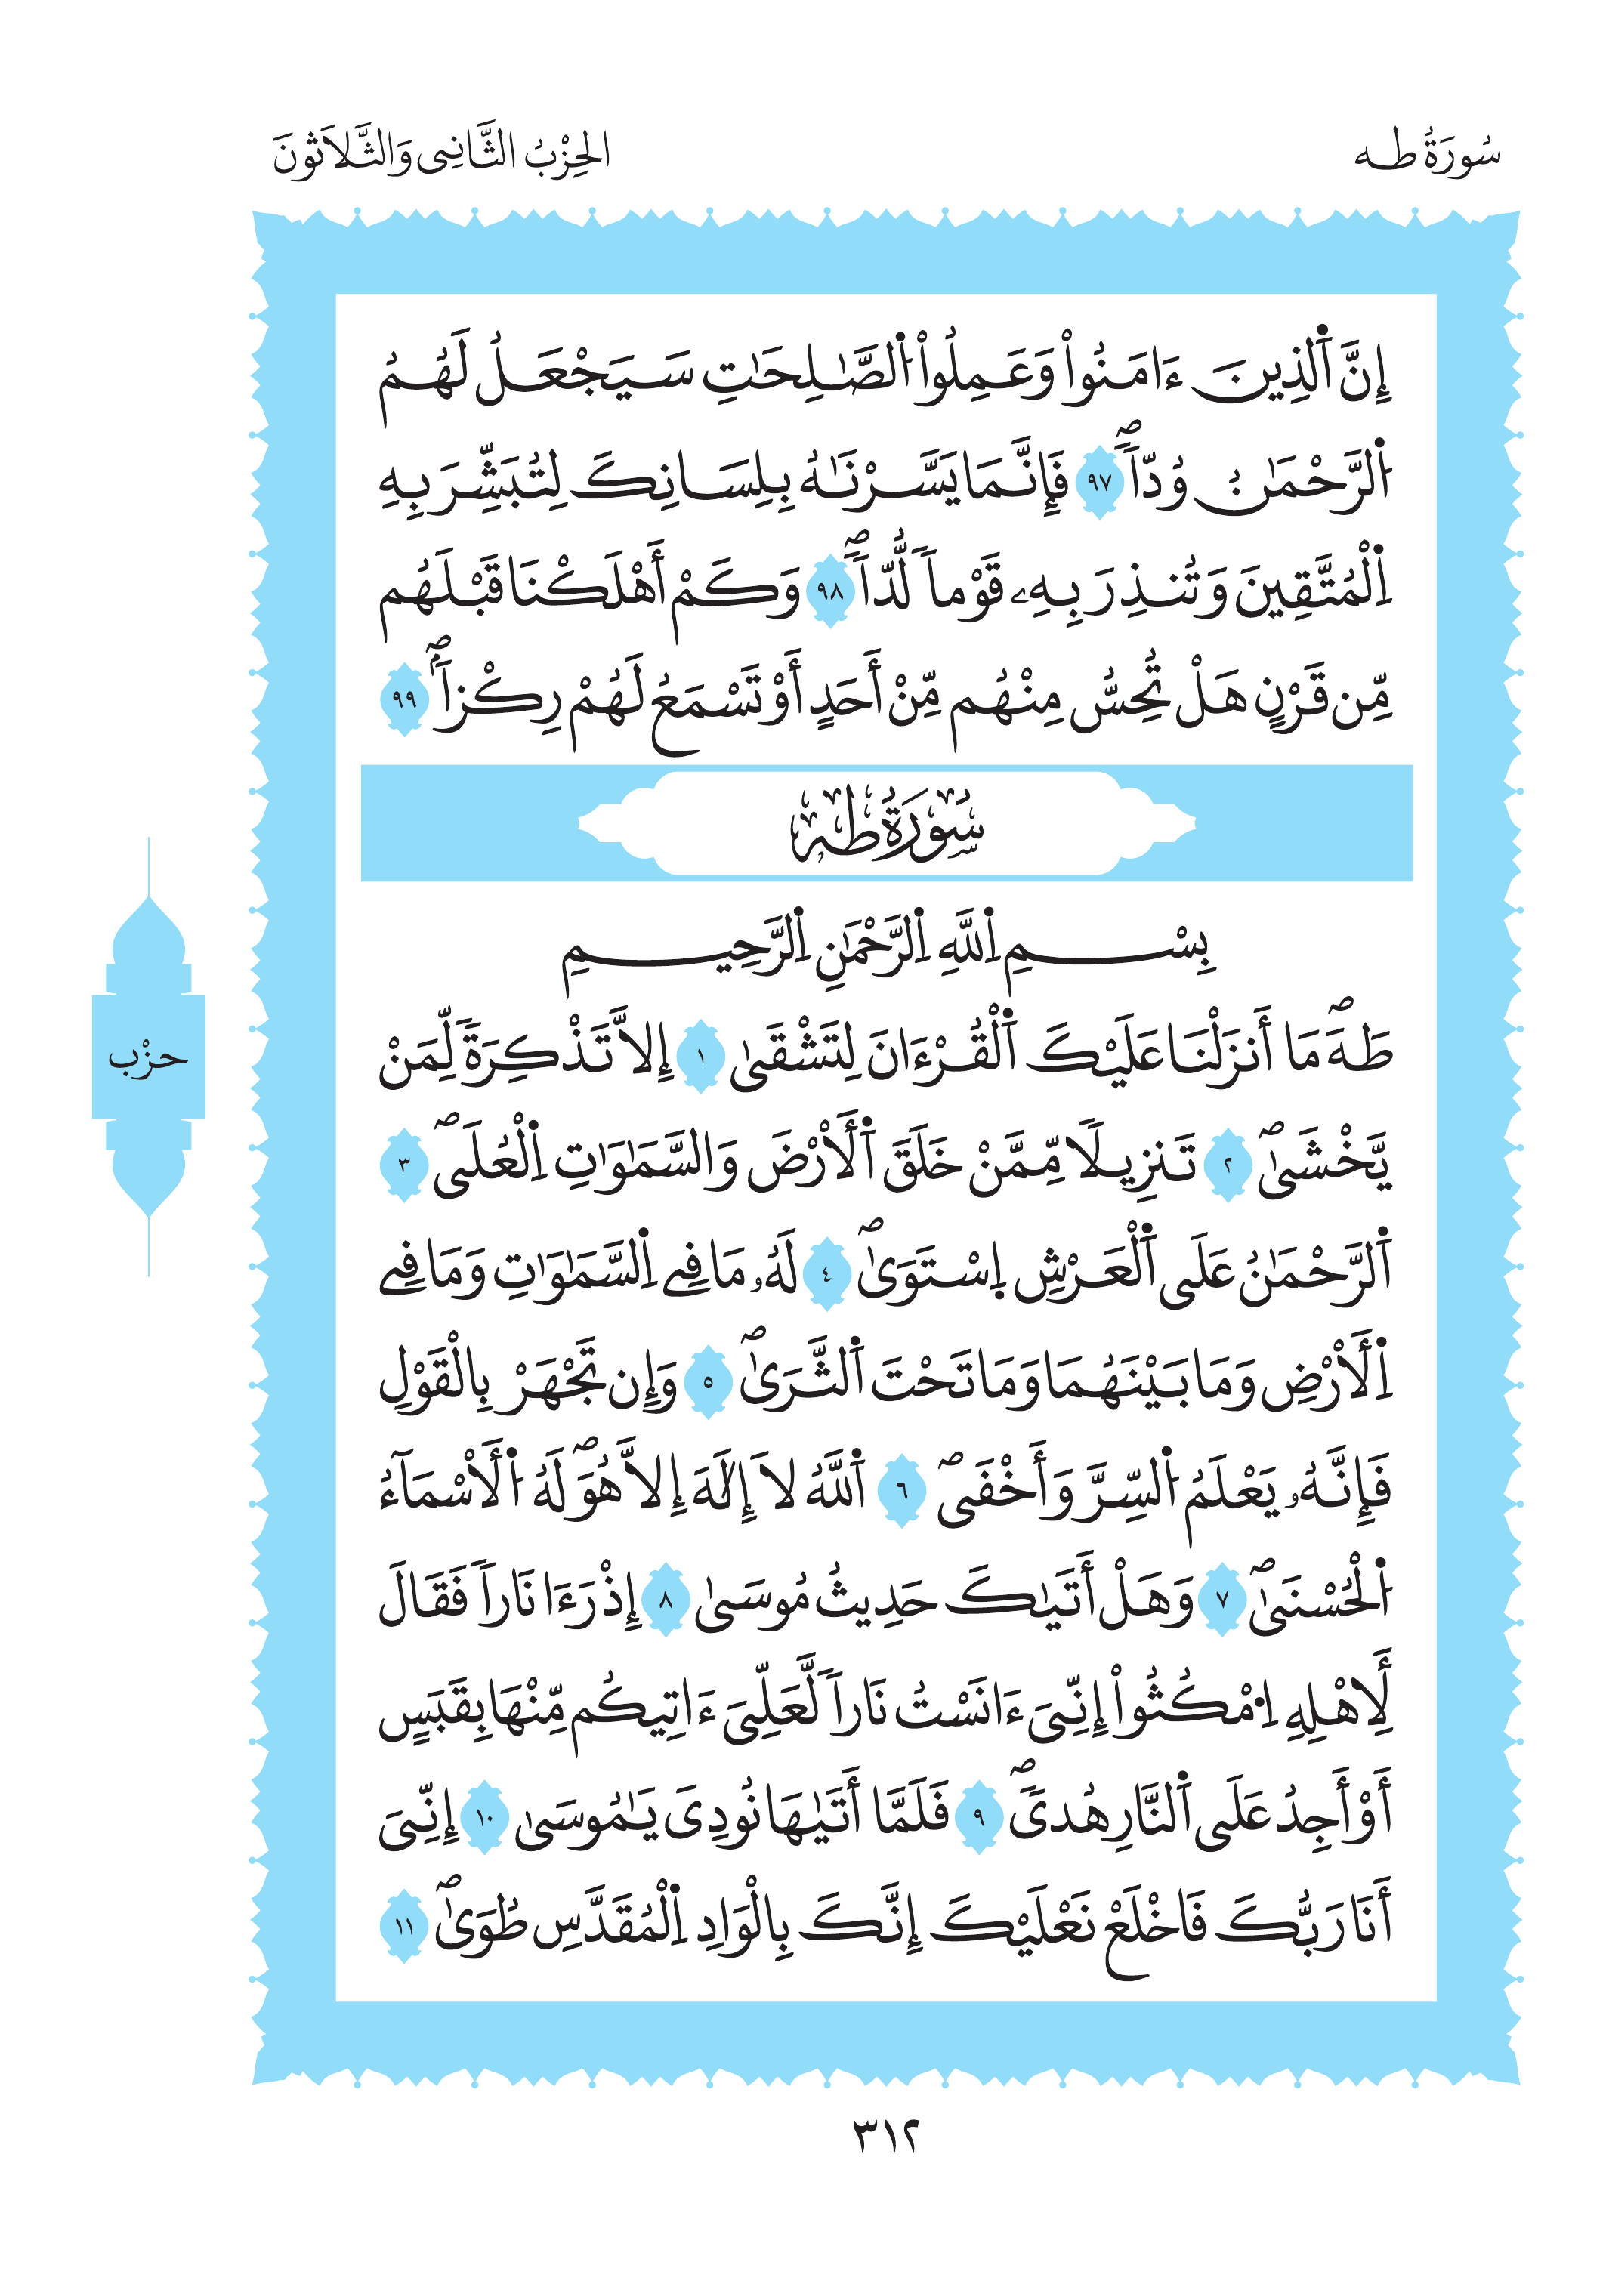 سُورَةُ طـه
الحِزْبُ الثَّانِى وَالثَّلاَثُونَ
إِنَّ اَ۬لذِينَ ءَامَنُواْ وَعَمِلُواْ اُ۬لصَّٰلِحَٰتِ سَيَجْعَلُ لَهُمُ
اُ۬لرَّحْمَٰنُ وُدّاٗۖ ٩٧ فَإِنَّمَا يَسَّرْنَٰهُ بِلِسَانِكَ لِتُبَشِّرَ بِهِ
اِ۬لْمُتَّقِينَ وَتُنذِرَ بِهِۦ قَوْماٗ لُّدّاٗۖ ٩٨ وَكَمْ أَهْلَكْنَا قَبْلَهُم
مِّن قَرْنٍ هَلْ تُحِسُّ مِنْهُم مِّنْ أَحَدٍ أَوْ تَسْمَعُ لَهُمْ رِكْزاَۢۖ ٩٩
سُورَةُ طَهَ
بِسْمِ اِ۬للَّهِ اِ۬لرَّحْمَٰنِ اِ۬لرَّحِيمِ
طَهَۖ مَا أَنزَلْنَا عَلَيْكَ اَ۬لْقُرْءَانَ لِتَشْقَىٰ ١ إِلاَّ تَذْكِرَةٗ لِّمَنْ
يَّخْشَىٰۖ ٢ تَنزِيلاٗ مِّمَّنْ خَلَقَ اَ۬لَارْضَ وَالسَّمَٰوَٰتِ اِ۬لْعُلَىۖ ٣
اَ۬لرَّحْمَٰنُ عَلَى اَ۬لْعَرْشِ اِ۪سْتَوَىٰۖ ٤ لَهُۥ مَا فِے اِ۬لسَّمَٰوَٰتِ وَمَا فِے
اِ۬لَارْضِ وَمَا بَيْنَهُمَا وَمَا تَحْتَ اَ۬لثَّرَىٰۖ ٥ وَإِن تَجْهَرْ بِالْقَوْلِ
فَإِنَّهُۥ يَعْلَمُ اُ۬لسِّرَّ وَأَخْفَىۖ ٦ اَ۬للَّهُ لاَ إِلَٰهَ إِلاَّ هُوَۖ لَهُ اُ۬لَاسْمَآءُ
اُ۬لْحُسْنَىٰۖ ٧ وَهَلْ أَتَيٰكَ حَدِيثُ مُوسَىٰ ٨ إِذْ رَءَا نَاراٗ فَقَالَ
لَّأِهْلِهِ اِ۟مْكُثُواْ إِنِّىَ ءَانَسْتُ نَاراٗ لَّعَلِّىَ ءَاتِيكُم مِّنْهَا بِقَبَسٍ
أَوْ أَجِدُ عَلَى اَ۬لنَّارِ هُدىٗۖ ٩ فَلَمَّا أَتَيٰهَا نُودِىَ يَٰمُوسَىٰ ١٠ إِنِّىَ
أَنَا رَبُّكَ فَاخْلَعْ نَعْلَيْكَ إِنَّكَ بِالْوَادِ اِ۬لْمُقَدَّسِ طُوَىٰۖ ١١
حزْب
٣١٢